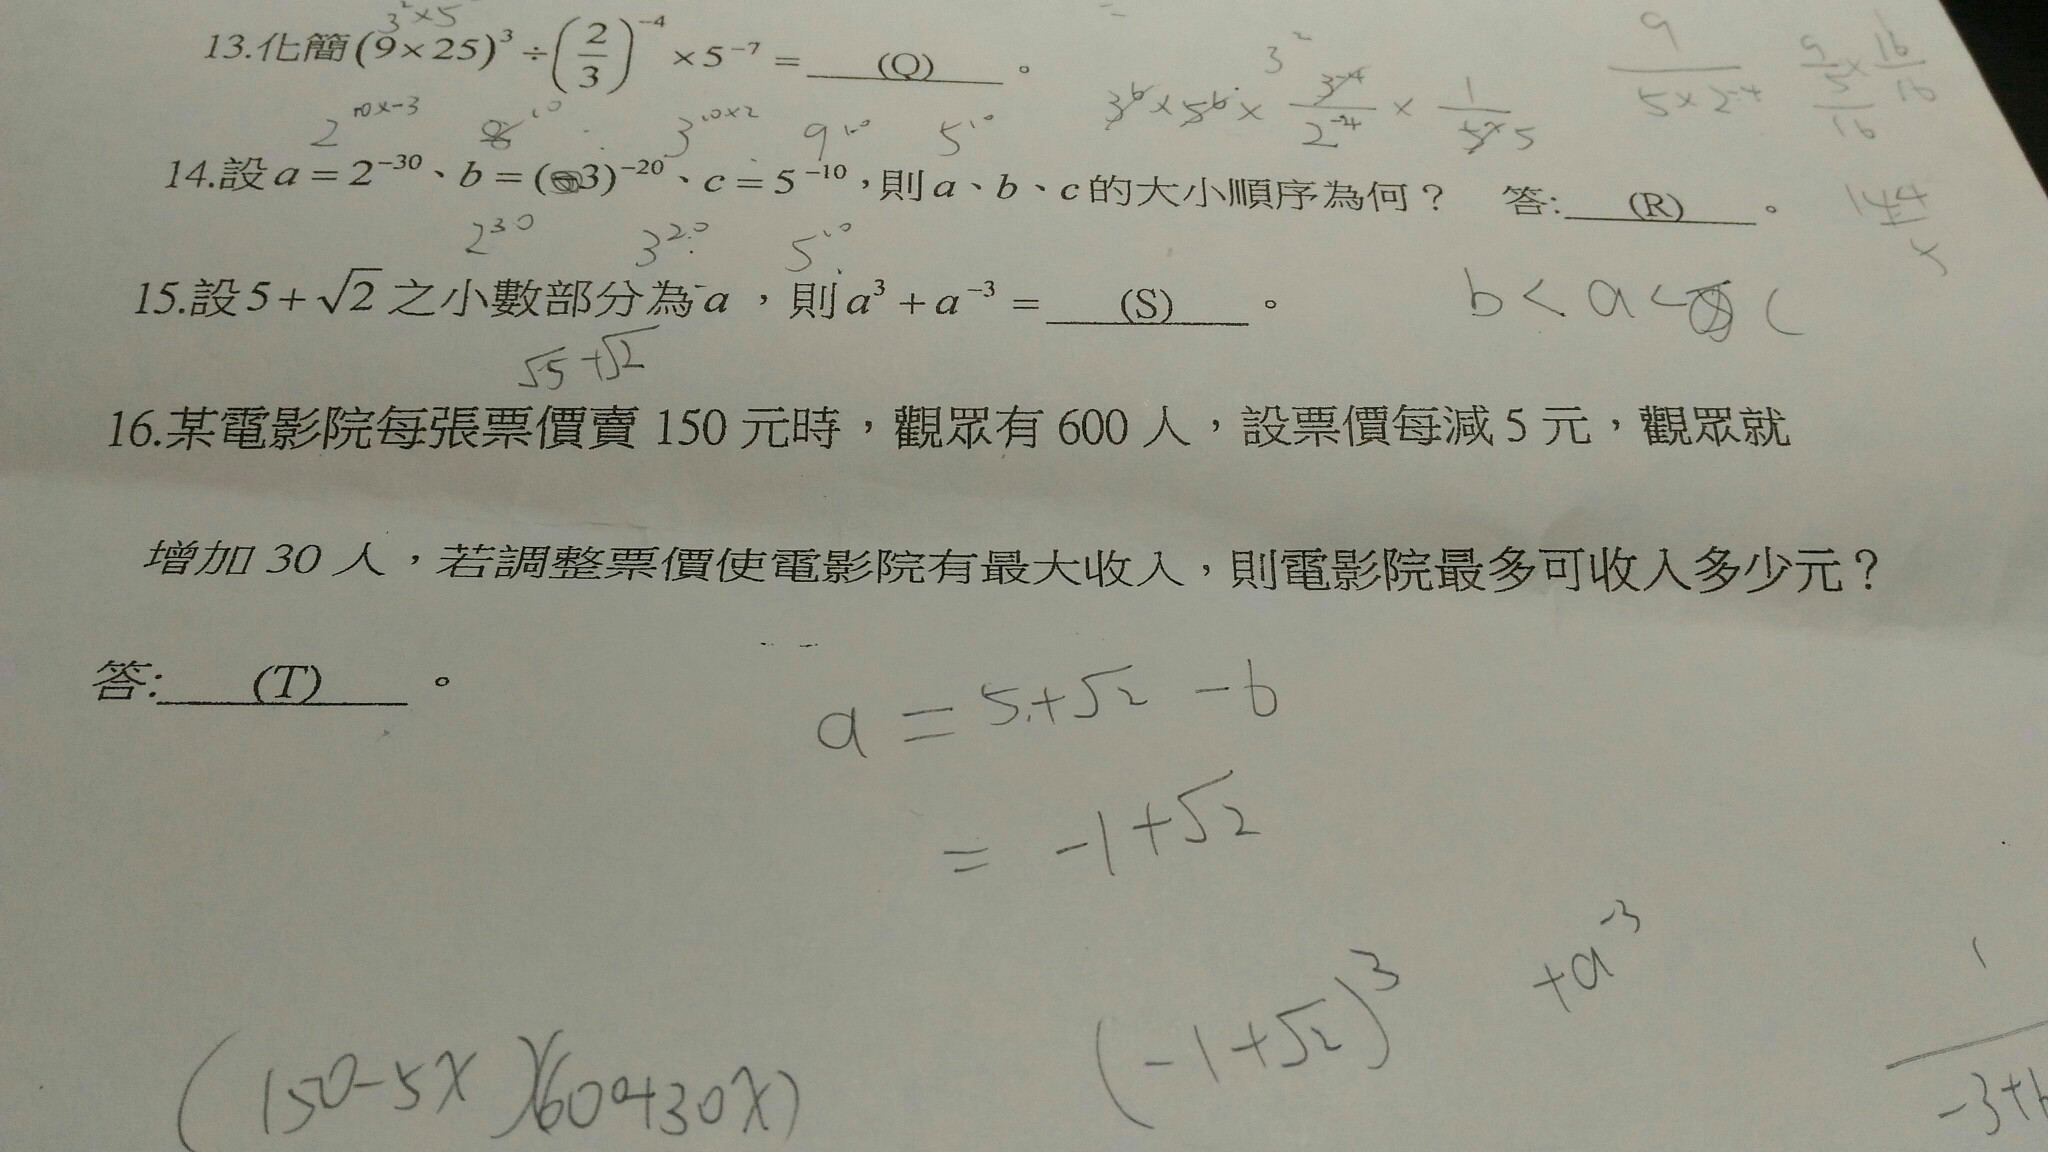 3² × 5
13.化簡(9×25)³÷(2/3)⁻⁴×5⁻⁷=   (Q)   。
3⁶ × 5⁶ × 3⁻⁴/2⁻⁴ × 1/5⁷ 5
3²
9/(5×2⁻⁴)
2^(10×-3) 8^10 3^(10×2) 9^10 5^10
14.設a=2⁻³⁰、b=(3)⁻²⁰、c=5⁻¹⁰,則a、b、c的大小順序為何? 答:   (R)   。
2³⁰ 3²⁰ 5¹⁰
15.設5+√2之小數部分為a,則a³+a⁻³=   (S)   。
b < a < c
√5+√2
16.某電影院每張票價賣 150 元時,觀眾有 600 人,設票價每減 5 元,觀眾就
增加 30 人,若調整票價使電影院有最大收入,則電影院最多可收入多少元?
答:   (T)   。
a = 5+√2 -6
= -1+√2
(-1+√2)³ +a⁻³
(150-5x)(600+30x)